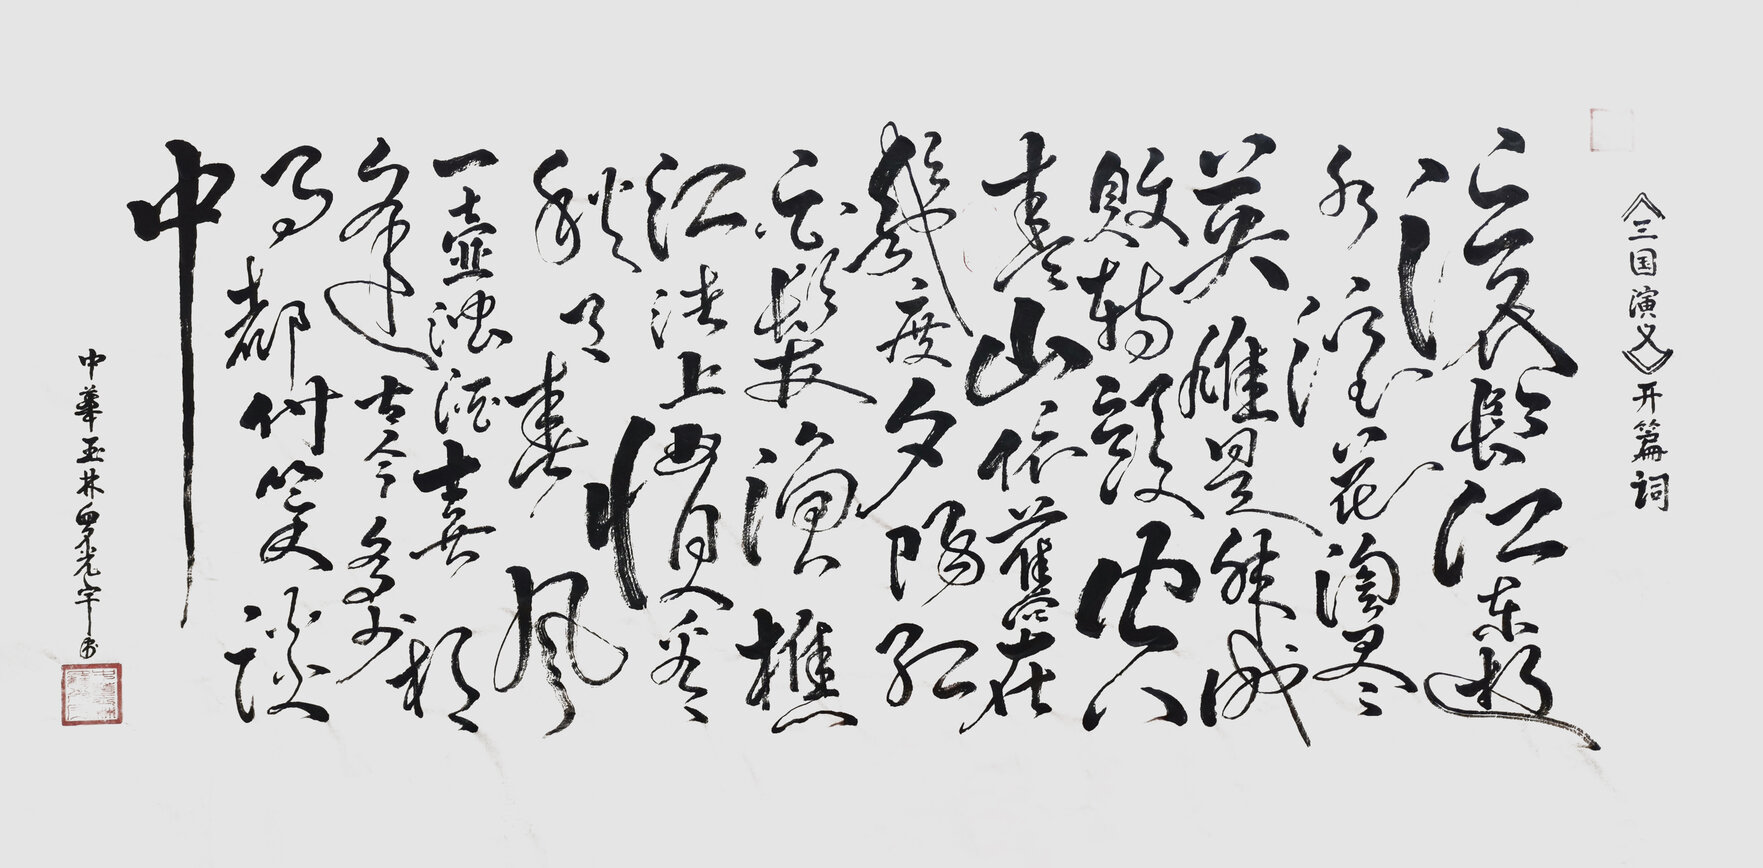 《三国演义》开篇词
滚滚長江东逝
水浪花淘尽
英雄是非成
败转頭空
青山依舊在
幾度夕陽红
白髮渔樵
江渚上惯看
秋月春風
一壶浊酒喜相
逢古今多少
事都付笑谈
中
中華玉林罗光宇书